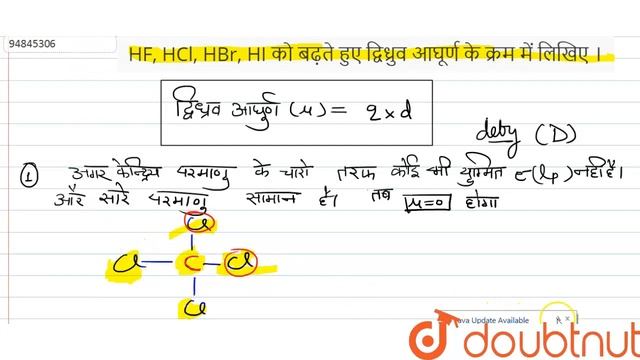 94845306
HF, HCl, HBr, HI को बढ़ते हुए द्विध्रुव आघूर्ण के क्रम में लिखिए ।
द्विध्रव आघुर्ण (μ) = q × d
deby (D)
① अगर केन्द्रिय परमाणु के चारो तरफ कोई भी युग्मित e⁻(lp) नही है।
और सारे परमाणु सामान है। तब μ=0 होगा
Cl
Cl C Cl
Cl
Java Update Available
doubtnut